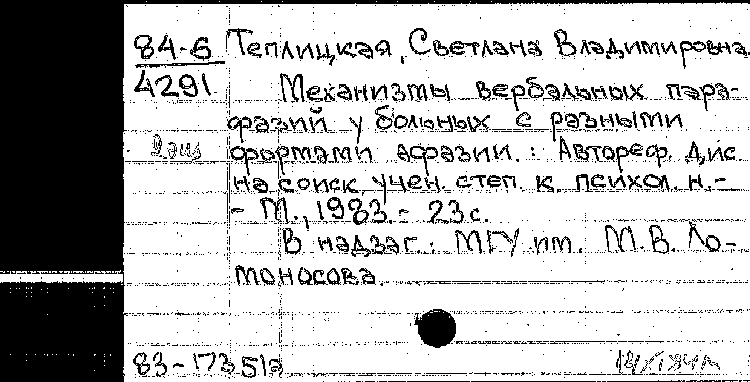 84-6 Теплицкая, Светлана Владимировна
4291 Механизмы вербальных пара-
фазий у больных с разными
формами афазии. : Автореф. дис.
на соиск. учен. степ. к. психол. н. -
- М., 1983. - 23 с.
В надзаг.: МГУ им. М.В. Ло-
моносова.
83-17351а